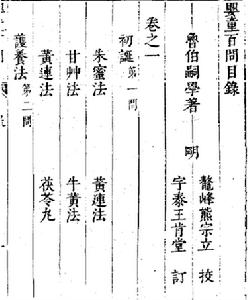 嬰童百問目錄
魯伯嗣學著 明 鰲峰熊宗立 校
字泰王肯堂 訂
卷之一
初誕 第一問
朱蜜法 黃連法
甘艸法 牛黃法
黃連法 茯苓丸
護養法 第二問